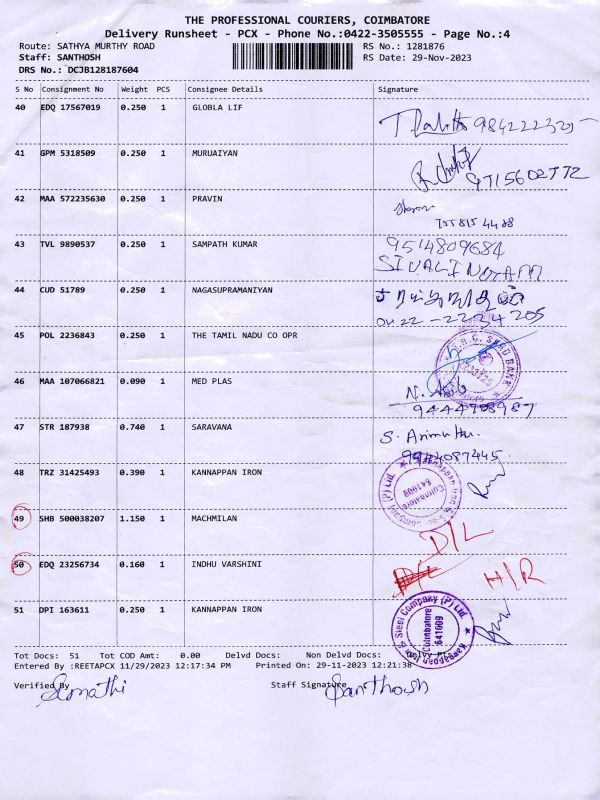 THE PROFESSIONAL COURIERS, COIMBATORE
Delivery Runsheet - PCX - Phone No.:0422-3505555 - Page No.:4
Route: SATHYA MURTHY ROAD RS No.: 1281876
Staff: SANTHOSH RS Date: 29-Nov-2023
DRS No.: DCJB128187604
S No Consignment No Weight PCS Consignee Details Signature
40 EDQ 17567019 0.250 1 GLOBLA LIF
41 GPM 5318509 0.250 1 MURUAIYAN
9715602772
42 MAA 572235630 0.250 1 PRAVIN
755 815 4488
43 TVL 9890537 0.250 1 SAMPATH KUMAR 9514809684
SIVALINGAM
44 CUD 51789 0.250 1 NAGASUPRAMANIYAN
0422-2234205
45 POL 2236843 0.250 1 THE TAMIL NADU CO OPR
46 MAA 107066821 0.090 1 MED PLAS
9444908987
47 STR 187938 0.740 1 SARAVANA S.
9944087445.
48 TRZ 31425493 0.390 1 KANNAPPAN IRON
Coimbatore
641009
49 SHB 500038207 1.150 1 MACHMILAN D/L
50 EDQ 23256734 0.160 1 INDHU VARSHINI H/R
51 DPI 163611 0.250 1 KANNAPPAN IRON
Kannappan Iron & Steel Company (P) Ltd.
Coimbatore
641009
Tot Docs: 51 Tot COD Amt: 0.00 Delvd Docs: Non Delvd Docs:
Entered By :REETAPCX 11/29/2023 12:17:34 PM Printed On: 29-11-2023 12:21:38
Verified By Staff Signature Santhosh